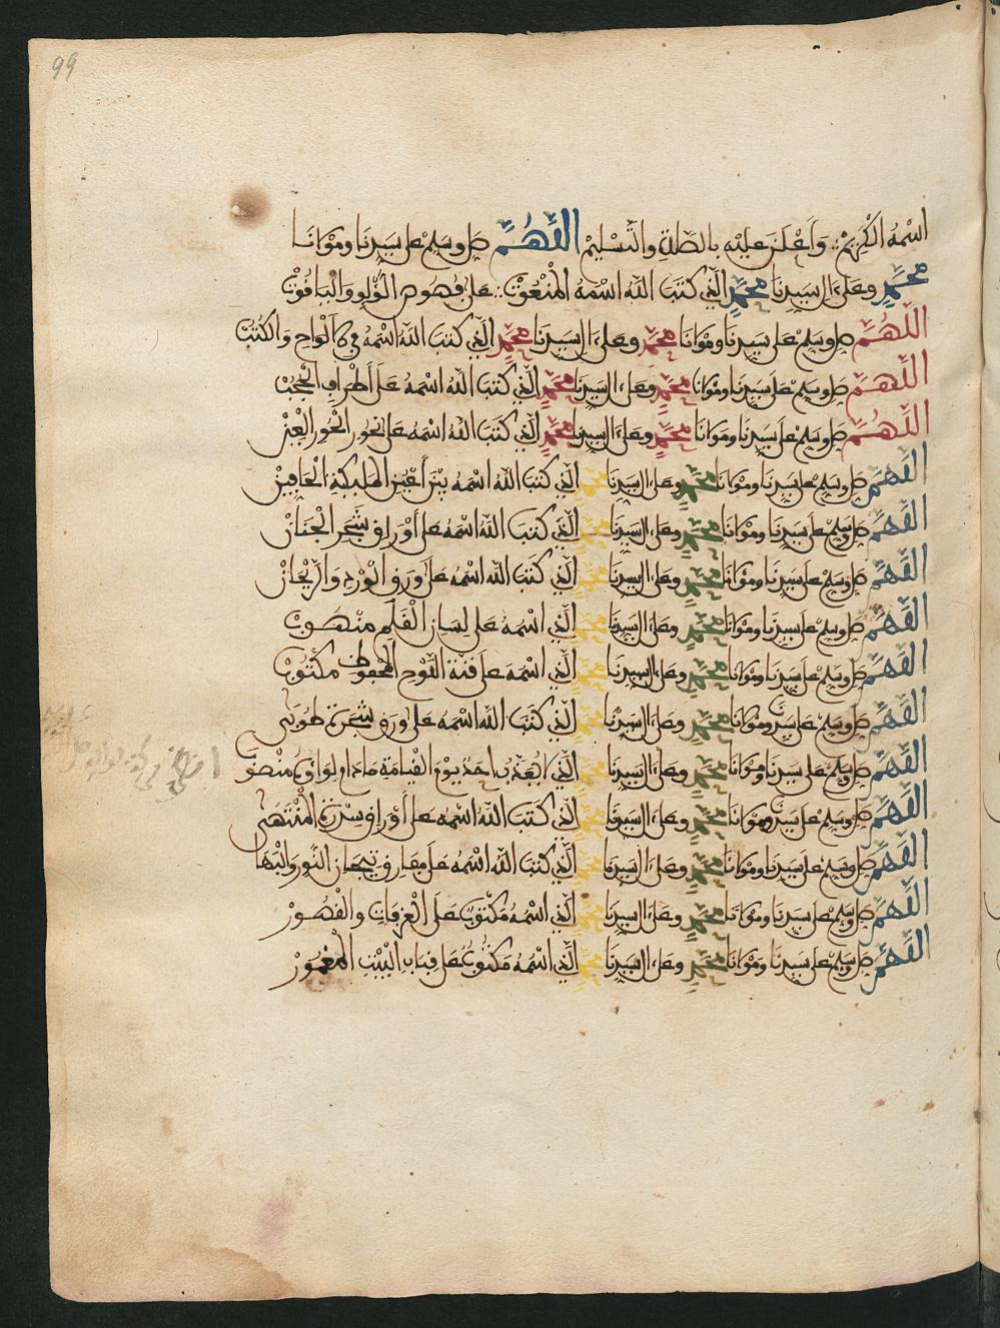 99
اسْمُهُ الكَرِيمُ وَأَعْلَنَ عَلَيْهِ بالصَّلاةِ والتَّسْلِيمِ اللَّهُمَّ صل وسلم على سيدنا ومولانا
محمد وعلى ءال سيدنا محمد الذي كتب الله اسمه المنعوت على فصوص اللؤلؤ والياقوت
اللهم صل وسلم على سيدنا ومولانا محمد وعلى ءال سيدنا محمد الذي كتب الله اسمه في الالواح والكتب
اللهم صل وسلم على سيدنا ومولانا محمد وعلى ءال سيدنا محمد الذي كتب الله اسمه على أطراف الحجب
اللهم صل وسلم على سيدنا ومولانا محمد وعلى ءال سيدنا محمد الذي كتب الله اسمه على نحور الحور العين
اللهم صل وسلم على سيدنا ومولانا محمد وعلى ءال سيدنا محمد الذي كتب الله اسمه بين أعين الملئكة الحافين
اللهم صل وسلم على سيدنا ومولانا محمد وعلى ءال سيدنا محمد الذي كتب الله اسمه على أوراق شجر الجنان
اللهم صل وسلم على سيدنا ومولانا محمد وعلى ءال سيدنا محمد الذي كتب الله اسمه على ورق الورد والريحان
اللهم صل وسلم على سيدنا ومولانا محمد وعلى ءال سيدنا محمد الذي اسمه على لسان القلم منصوب
اللهم صل وسلم على سيدنا ومولانا محمد وعلى ءال سيدنا محمد الذي اسمه على اللوح المحفوظ مكتوب
اللهم صل وسلم على سيدنا ومولانا محمد وعلى ءال سيدنا محمد الذي كتب الله اسمه على ورق شجرة طوبى
اللهم صل وسلم على سيدنا ومولانا محمد وعلى ءال سيدنا محمد الذي لا يعذب أحد يوم القيامة ما دام لواؤه منصوب
اللهم صل وسلم على سيدنا ومولانا محمد وعلى ءال سيدنا محمد الذي كتب الله اسمه على أوراق سدرة المنتهى
اللهم صل وسلم على سيدنا ومولانا محمد وعلى ءال سيدنا محمد الذي كتب الله اسمه على مفارق تيجان النور والبها
اللهم صل وسلم على سيدنا ومولانا محمد وعلى ءال سيدنا محمد الذي اسمه مكتوب على الغرفات والقصور
اللهم صل وسلم على سيدنا ومولانا محمد وعلى ءال سيدنا محمد الذي اسمه مكتوب على قباب البيت المعمور